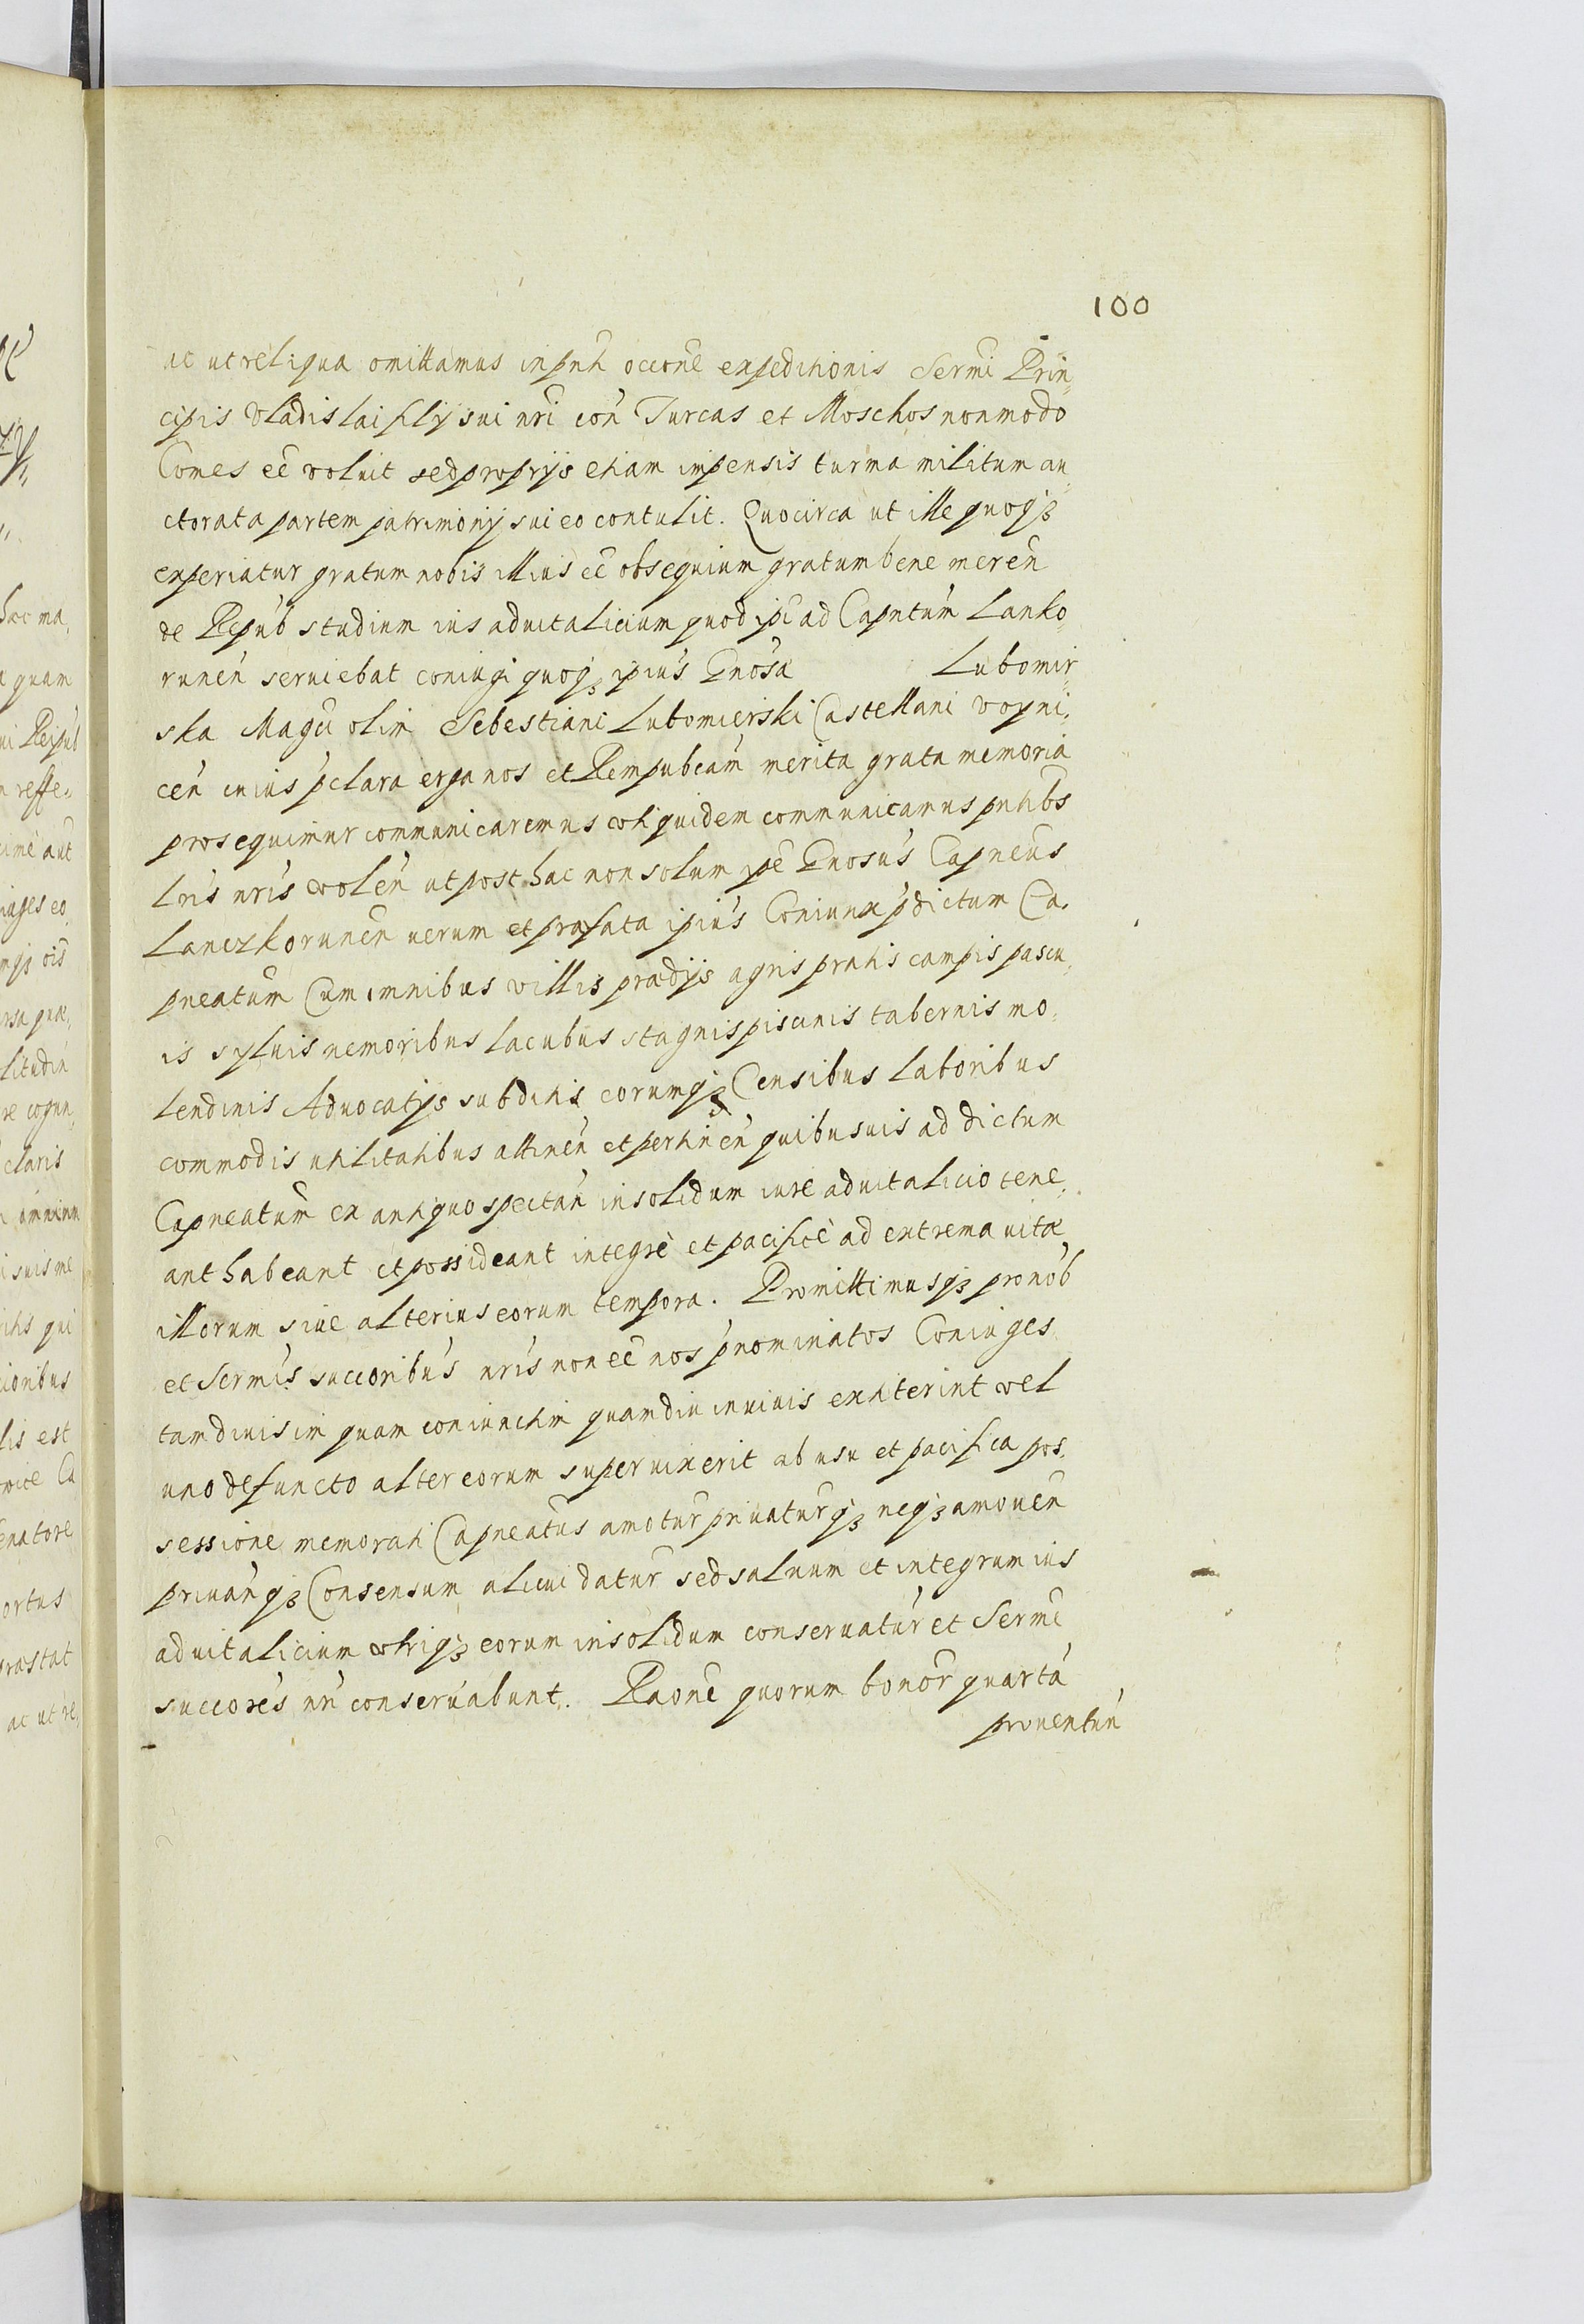 100
ac ut reliqua omittamus in pnti occone expeditionis Sermi Prin,
cipis Vladislai filij sui nri con Turcas et Moschos non modo
Comes eē voluit sed proprijs etiam impensis turma militum au,
ctorata partem patrimonij sui eo contulit. Quocirca ut ille quoqȝ
experiatur gratum nobis illius eē obsequium gratum bene meren
de Repub studium ius aduitalicium quod ipi ad Capntum Lanko,
runen seruiebat coniugi quoqȝ ipius Gnosa Lubomir,
ska Magci olim Sebestiani Lubomierski Castellani voyni,
cen cuius pclara erga nos et Rempubcam merita grata memoria
prosequimur communicaremus vti quidem communicamus pntibs
Lris nris volen ut post hac non solum ipe Gnosus Capneus
Lanczkorunen uerum et præfata ipius Coniunx pdictum Ca,
pneatum Cum omnibus villis prædijs agris pratis campis pascu,
is syluis nemoribus lacubus stagnis piscinis tabernis mo,
lendinis Aduocatijs subditis eorumqȝ Censibus laboribus
commodis utilitatibus attinen et pertinen quibusuis ad dictum
Capneatum ex antiquo spectan in solidum iure aduitalicio tene,
ant habeant et possideant integrè et pacificè ad extrema uitæ
illorum siue alterius eorum tempora. Promittimusqȝ pro nob
et Sermis succoribus nris non eē nos pnominatos Coniuges
tam diuisim quam coniunctim quamdiu in uiuis extiterint vel
uno defuncto alter eorum superuixerit ab usu et pacifica pos,
sessione memorati Capneatus amotur priuaturqȝ neqȝ amouen
priuanqȝ Consensum alicui datur sed saluum et integrum ius
aduitalicium vtriqȝ eorum in solidum conseruatur et Sermi
succores nri conseruabunt. Raone quorum bonor quarta
prouentun